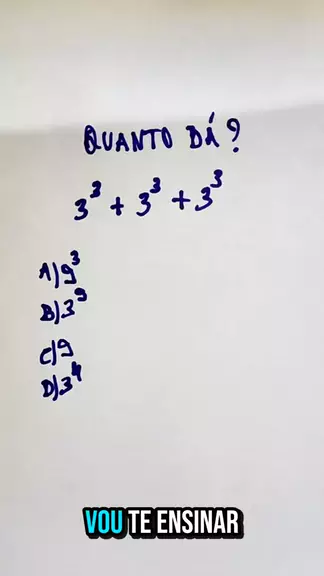 QUANTO DÁ?
3³ + 3³ + 3³
A) 9³
B) 3⁹
C) 9
D) 3⁴
VOU TE ENSINAR